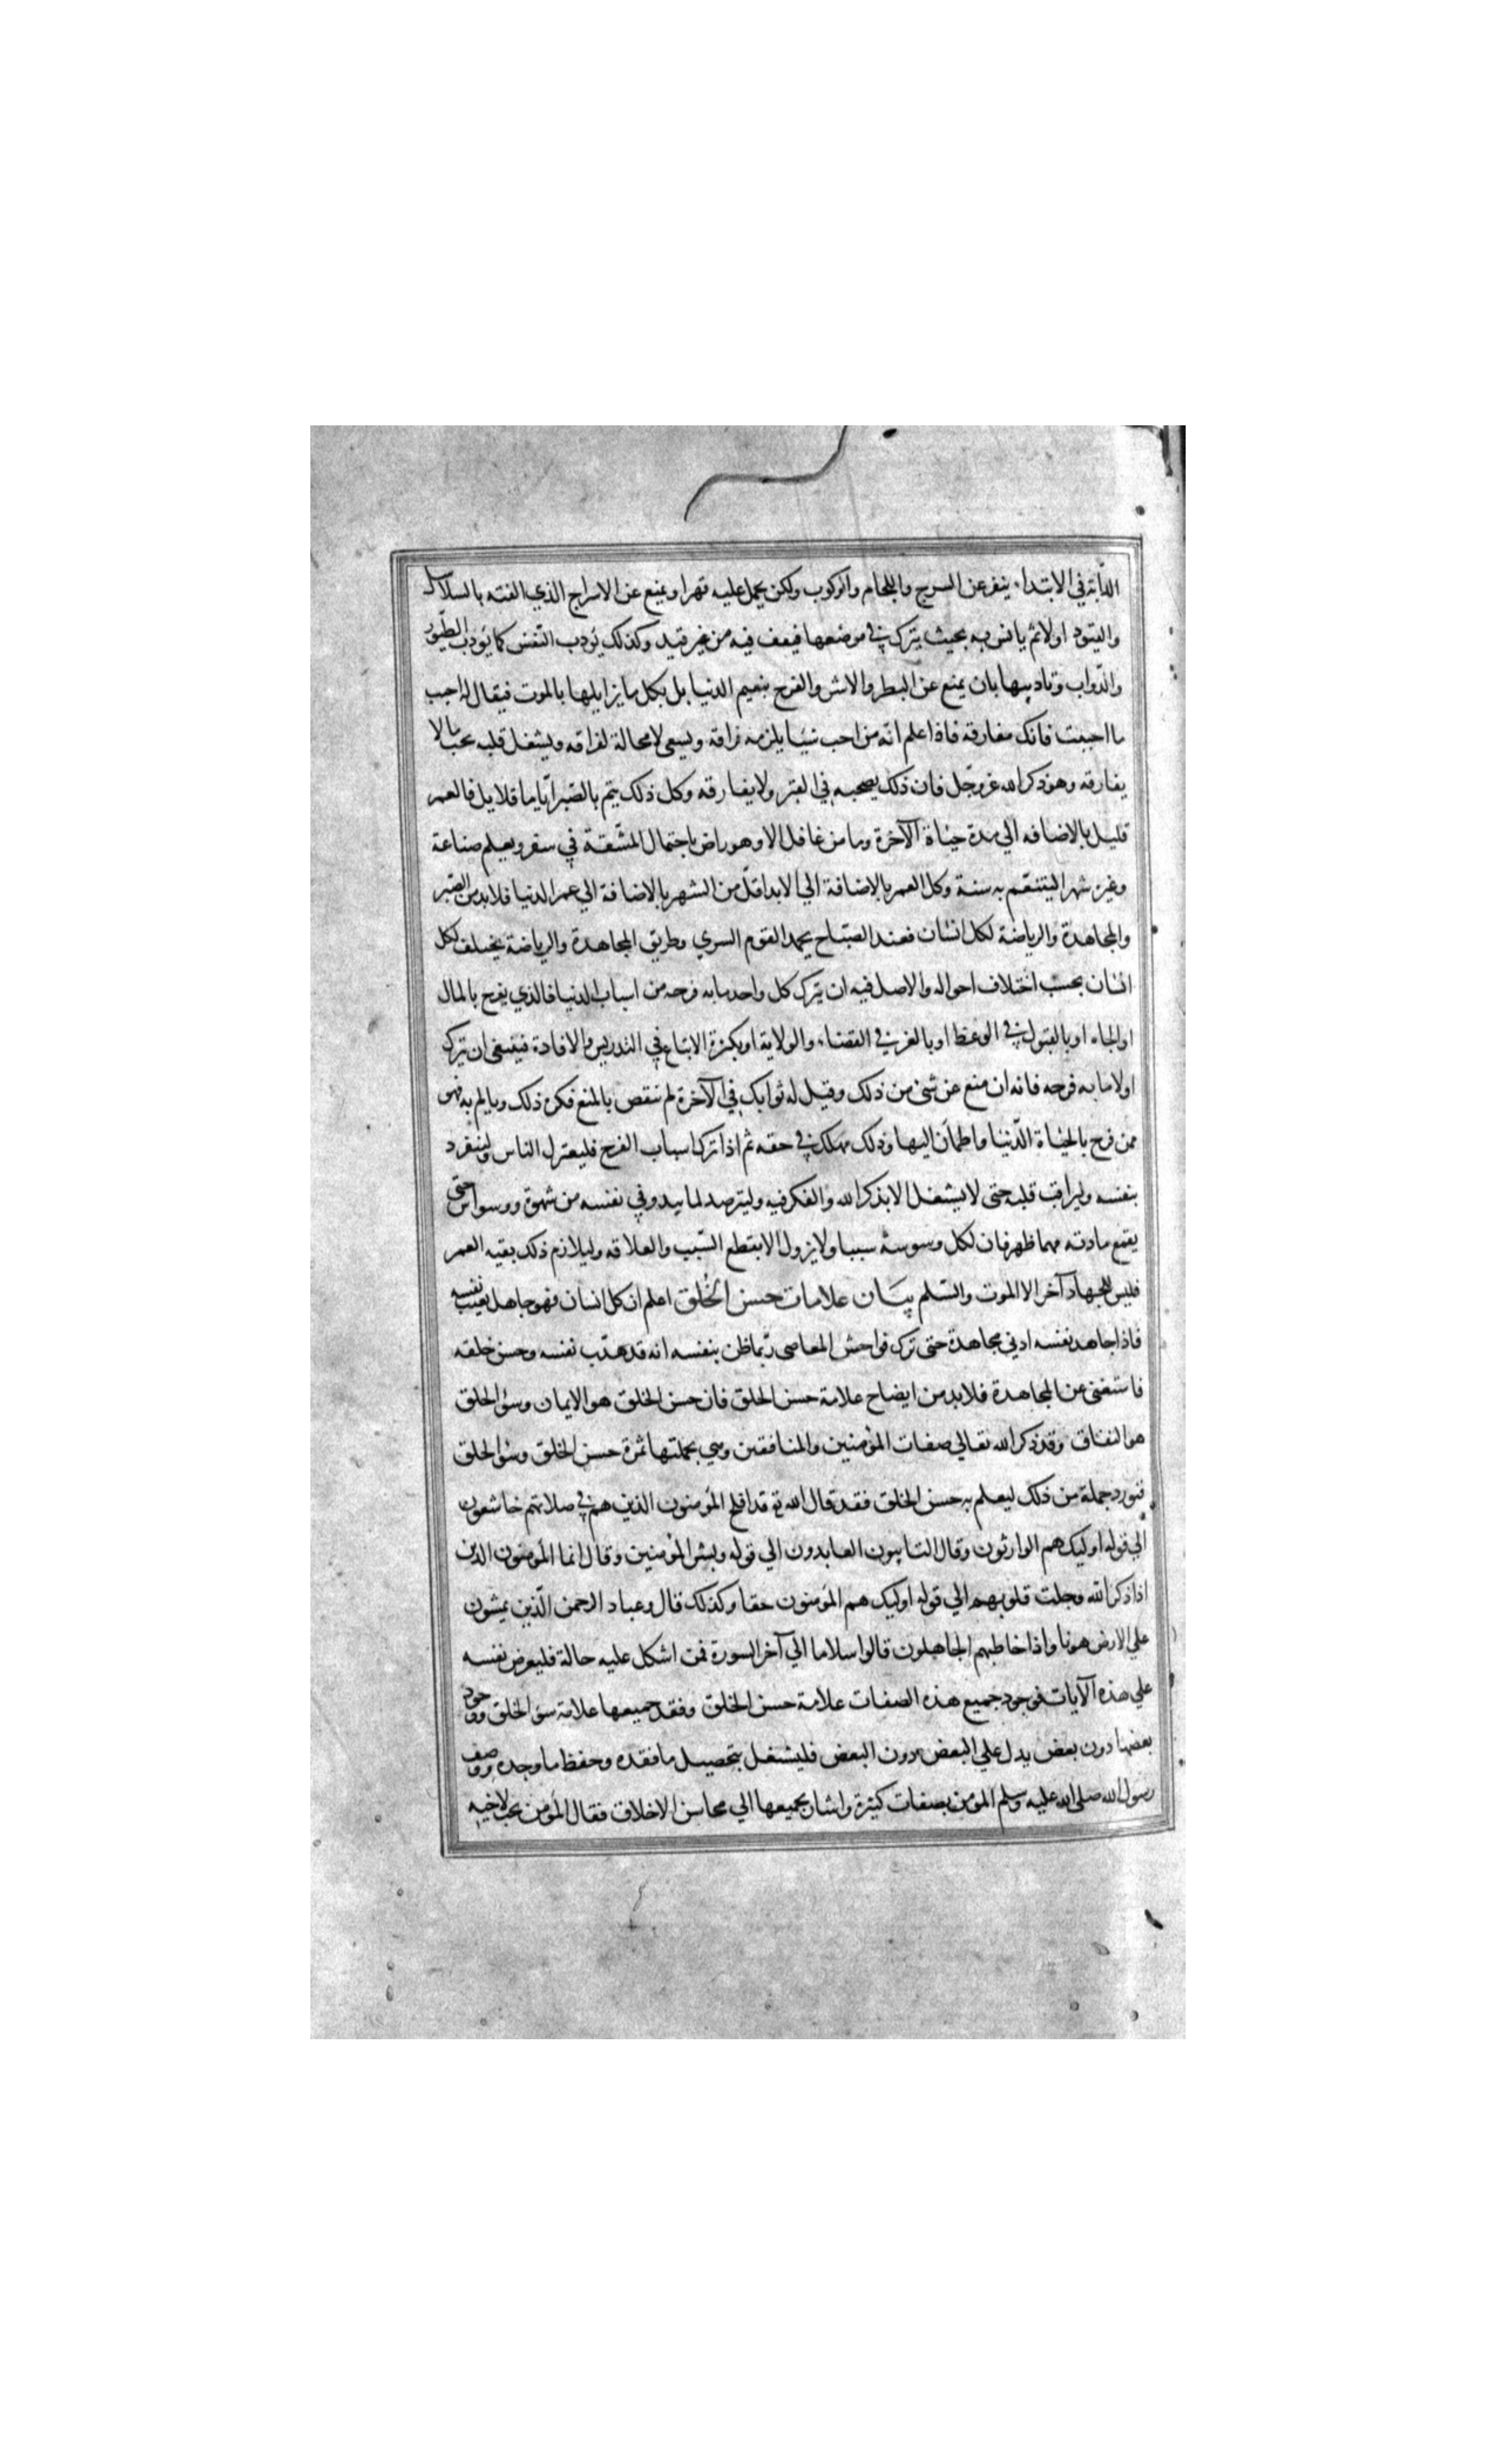 الدّابة في الابتداء ينفر عن السرج واللجام والركوب ولكن يحمل عليه قهرا ويمنع عن الاسراج الذي الفته بالسلاسل
والقيود اولا ثم يانس به بحيث يترك في موضعها فيقف فيه من غير قيد وكذلك يؤدب النّفس كما يؤدب الطّيور
والدّواب وتاديبها بان يمنع عن البطر والاشر والفرح بنعيم الدنيا بل بكل ما يزايلها بالموت فيقال له احبب
ما احببت فانك مفارقه فاذا علم انّه من احب شيئا يلزمه فراقه ويسعى لا محالة لفراقه ويشغل قلبه بحب ما لا
يفارقه وهو ذكر الله عز وجّل فان ذلك يصحبه في القبر ولا يفارقه وكل ذلك يتم بالصّبر ايّاما قلايل فالعمر
قليل بالاضافه الي مدة حياة الآخرة وما من غافل الا وهو راض باحتمال المشّقة في سفر ويعلم صناعة
وغيره شهرا ليتنعّم به سنة وكل العمر بالاضافة الي الابد اقلّ من الشهر بالاضافة الي عمر الدنيا فلابد من الصّبر
والمجاهدة والرياضة لكل انسان فعند الصّباح يحمد القوم السري وطريق المجاهدة والرياضة يختلف لكل
انسان بحسب اختلاف احواله والاصل فيه ان يترك كل واحد ما به فرحه من اسباب الدنيا فالذي يفرح بالمال
او الجاه او بالقبول في الوعظ او بالعز في القضاء والولاية او بكثرة الاتباع في التدريس والافادة فينبغي ان يترك
اولا ما به فرحه فانه ان منع عن شئ من ذلك وقيل له ثوابك في الآخرة لم ننقص بالمنع فكره ذلك وتالم به فهو
ممن فرح بالحياة الدّنيا واطمأن اليها وذلك مهلك في حقه ثم اذا ترك اسباب الفرح فليعتزل الناس ولينفرد
بنفسه وليراقب قلبه حتى لا يشغل الا بذكر الله والفكر فيه وليترصد لما يبدو في نفسه من شهوة ووسواس حتى
يقمع مادته مهما ظهر فان لكل وسوسة سببا ولا يزول الا بقطع السّبب والعلاقه وليلازم ذلك بقيه العمر
فليس للجهاد آخر الا الموت والسّلم بيَان علامات حسن الخُلق اعلم ان كل انسان فهو جاهل بعيب نفسه
فاذا جاهد نفسه ادني مجاهدة حتى ترك فواحش المعاصي ربّما ظن بنفسه انه قد هذّب نفسه وحسن خلقه
فاستغنى عن المجاهدة فلابد من ايضاح علامة حسن الخلق فان حسن الخلق هو الايمان وسؤ الخلق
هو النفاق وقد ذكر الله تعالي صفات المؤمنين والمنافقين وهي بجملتها ثمرة حسن الخلق وسؤ الخلق
فنورد جملة من ذلك ليعلم به حسن الخلق فقد قال الله تع قد افلح المؤمنون الذين هم في صلاتهم خاشعون
الي قوله اوليك هم الوارثون وقال التايبون العابدون الي قوله وبشر المؤمنين وقال انما المؤمنون الذين
اذا ذكر الله وجلت قلوبهم الي قوله اوليك هم المؤمنون حقا وكذلك قال وعباد الرحمن الّذين يمشون
علي الارض هونا واذا خاطبهم الجاهلون قالوا سلاما الي آخر السورة فمن اشكل عليه حالة فليعرض نفسه
علي هذه الآيات فوجود جميع هذه الصفات علامة حسن الخلق وفقد جميعها علامة سؤ الخلق ووجود
بعضها دون بعض يدل علي البعض دون البعض فليشغل بتحصيل ما فقده وحفظ ما وجده ووصف
رسول الله صلى الله عليه وسلم المؤمن بصفات كثيرة واشار بجميعها الي محاسن الاخلاق فقال المؤمن يحب لاخيه